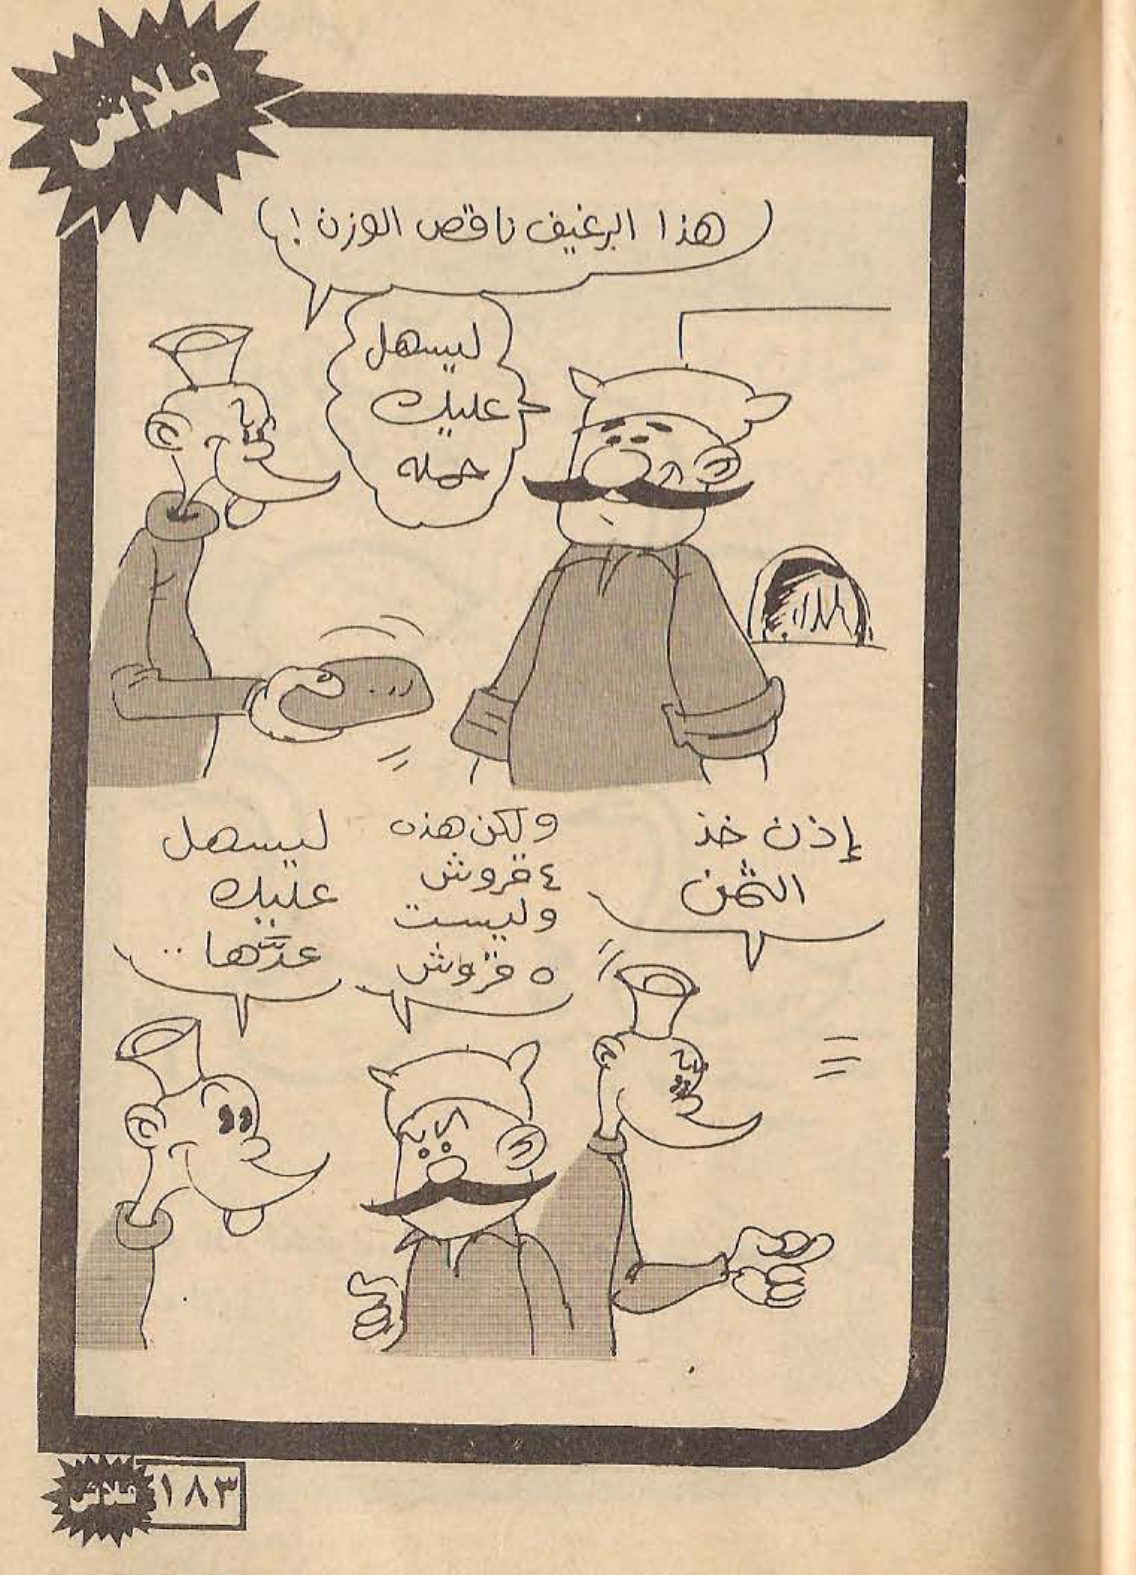 فلاش
هذا الرغيف ناقص الوزن!
ليسهل
عليك
حمله
إذن خذ
الثمن
ولكن هذه
٤ قروش
وليست
٥ قروش
ليسهل
عليك
عدّها..
فلاش ١٨٣